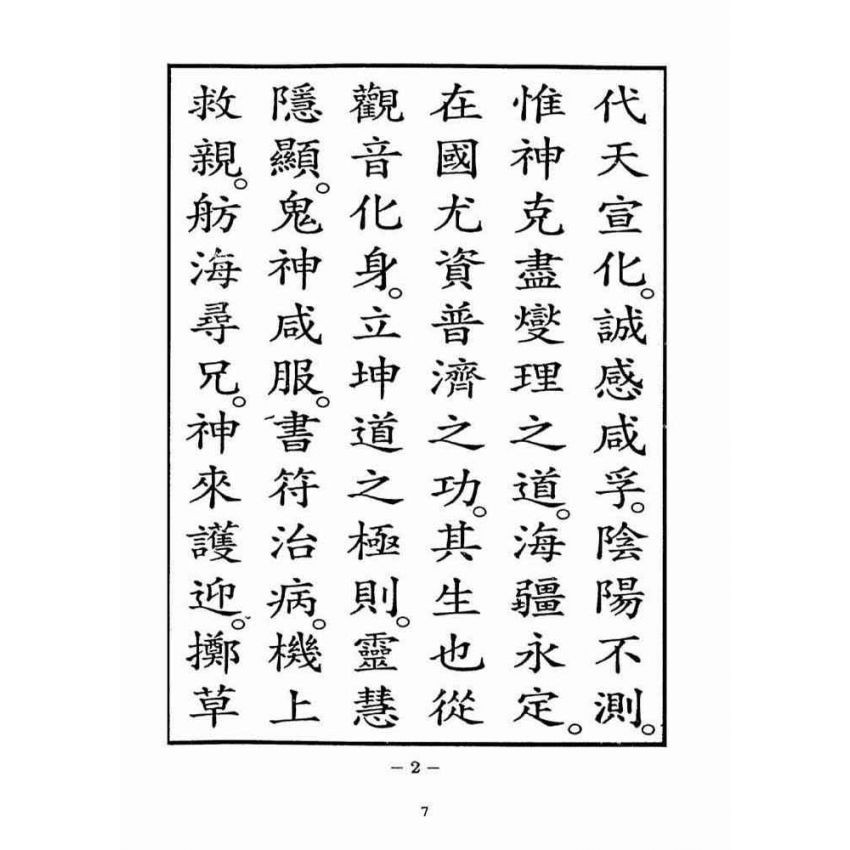 代天宣化。誠感咸孚。陰陽不測。
惟神克盡燮理之道。海疆永定。
在國尤資普濟之功。其生也從
觀音化身。立坤道之極則。靈慧
隱顯。鬼神咸服。書符治病。機上
救親。舫海尋兄。神來護迎。擲草
－2－
7